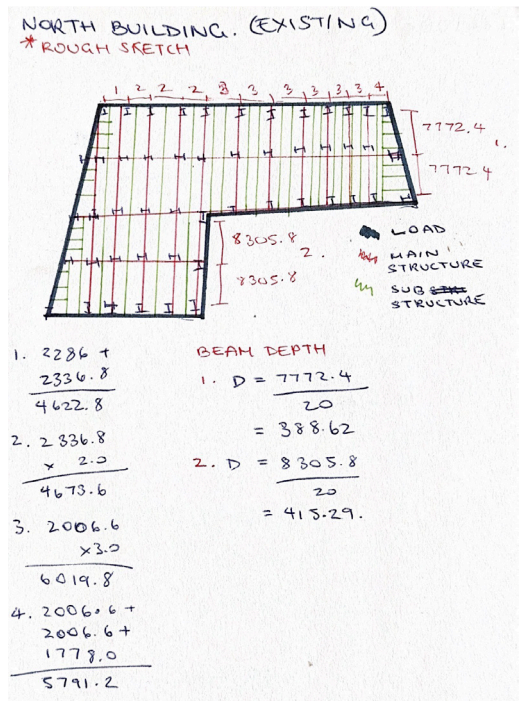 NORTH BUILDING. (EXISTING)
* ROUGH SKETCH
1 2 2 2 3 3 3 3 3 3 4
7772.4
1.
7772.4
8305.8
2.
8305.8
LOAD
MAIN
STRUCTURE
SUB
STRUCTURE
1. 2286 +
2336.8
4622.8
2. 2336.8
x 2.0
4673.6
3. 2006.6
x3.0
6019.8
4. 2006.6 +
2006.6 +
1778.0
5791.2
BEAM DEPTH
1. D = 7772.4
20
= 388.62
2. D = 8305.8
20
= 415.29.